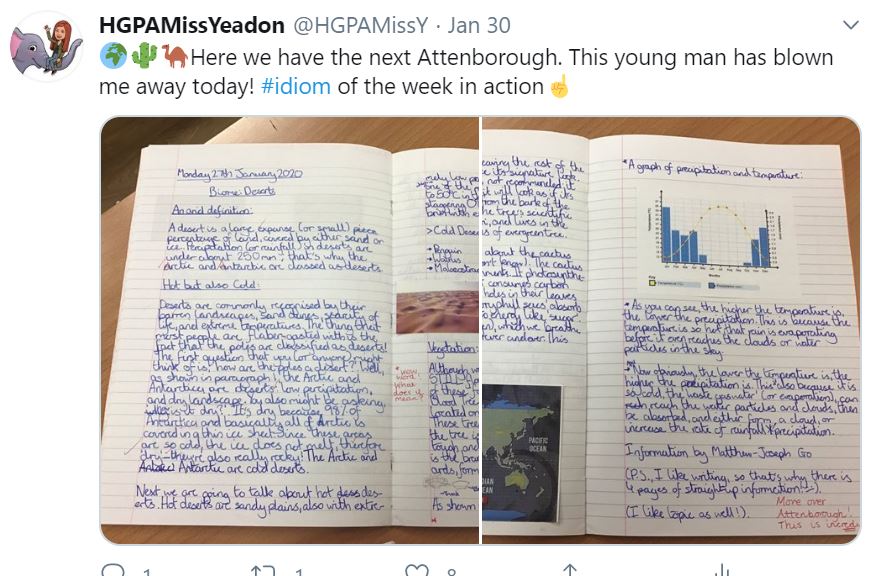 HGPAMissYeadon @HGPAMissY · Jan 30
Here we have the next Attenborough. This young man has blown
me away today! #idiom of the week in action
Monday 27th January 2020
Biome: Deserts
An arid definition:
A desert is a large expanse (or small) piece
percentage of land, covered by either sand or
ice. Percipitation (or rainfall) in deserts are
under about 250mm; that's why the
Arctic and Antarctic are classed as deserts.
Hot but also Cold:
Deserts are commonly recognised by their
barren landscapes, sand dunes, scarcity of
life, and extreme temperatures. The thing that
most people are flabergasted with is the
fact that the poles are classified as deserts!
The first question that you (or anyone) might
think of is; how are the poles a desert? Well,
as shown in paragraph 1, the Arctic and
Antarctic are deserts: low percipitation,
and dry landscape, by also might be asking,
is it dry? It's dry because 98% of
Antarctica and basically all of Arctic is
covered in thin ice sheet. Since these areas
are so cold, the ice does not melt, therefore
dry- they're also really rocky! The Arctic and
Antarctic are cold deserts.
Next we are going to talk about hot des-
erts. Hot deserts are sandy plains, also with extre-
mely low
one of the
to 50°C in
> Cold Deser
Penguin
Walrus
Vegetation:
wow
word
what
does it
mean?
Although
of these
Located on
These tree
the tree i
tough and
is the bra
As shown
eaving the rest of the
e its signature look.
not recommended it
it will look as if it's
from the bark of the
he tree's scientific
, and lives in the
s of evergreen tree.
about the cactus
The cactus
consumes carbon
holes in their leaves
absorb
energy like sugar
, which we breathe
over and over. This
PACIFIC
OCEAN
DIAN
EAN
A graph of precipitation and temperature:
Months
As you can see, the higher the temperature is,
the lower the precipitation. This is because the
temperature is so hot that rain is evaporating
before it even reaches the clouds or water
particles in the sky.
Now obviously, the lower the temperature is the
higher the precipitation is. This also because it is
so cold, the waste (or evaporation), can
reach the water particles and clouds, then
be absorbed, and either form a cloud, or
increase the rate of rainfall & precipitation.
Information by Matthew-Joseph Go
(P.S., I like writing, so that's why there is
4 pages of straight up information! :-).
(I like topic as well!).
More over
Attenborough!
This is incred
1
1
8